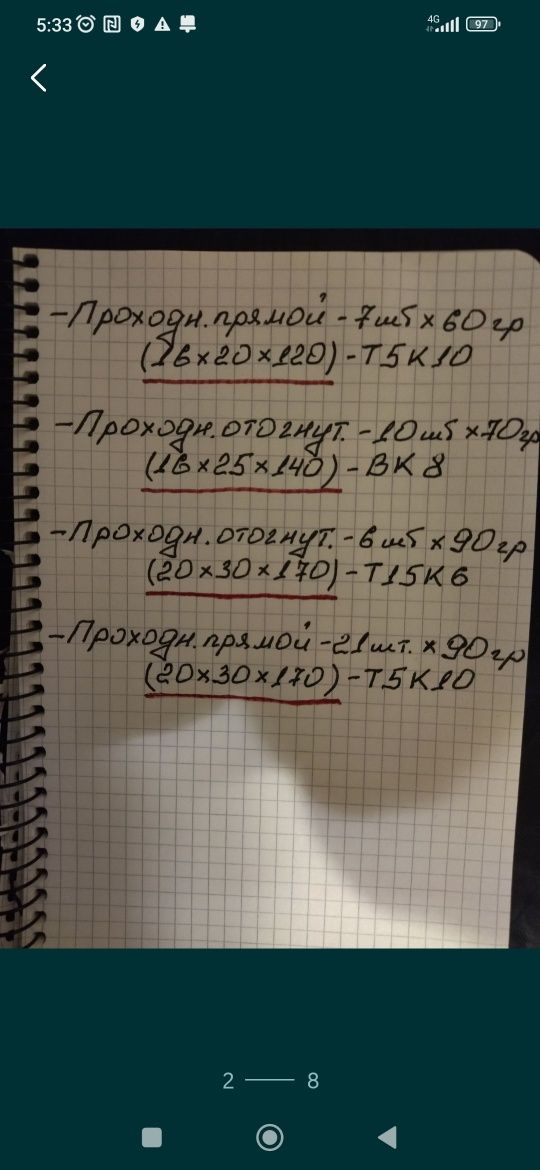 5:33
4G
97
-Проходн.прямой-7шт×60гр
(16×20×120)-Т5К10
-Проходн.отогнут.-10шт×70гр
(16×25×140)-ВК8
-Проходн.отогнут.-6шт×90гр
(20×30×170)-Т15К6
-Проходн.прямой-21шт.×90гр
(20×30×170)-Т5К10
2 — 8